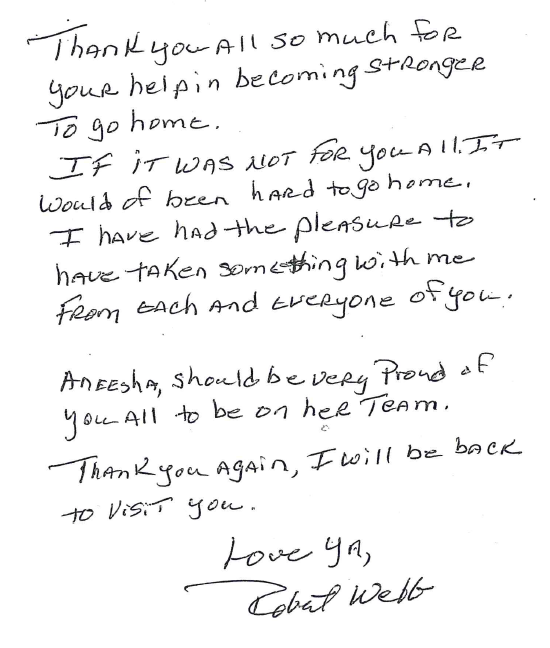 Thank you All so much for
your help in becoming stronger
To go home.
If it was not for you All. It
would of been hard to go home.
I have had the pleasure to
have taken something with me
from each and everyone of you.
Aneesha, should be very Proud of
you All to be on her Team.
Thank you Again, I will be back
to visit you.
Love ya,
Robert Webb